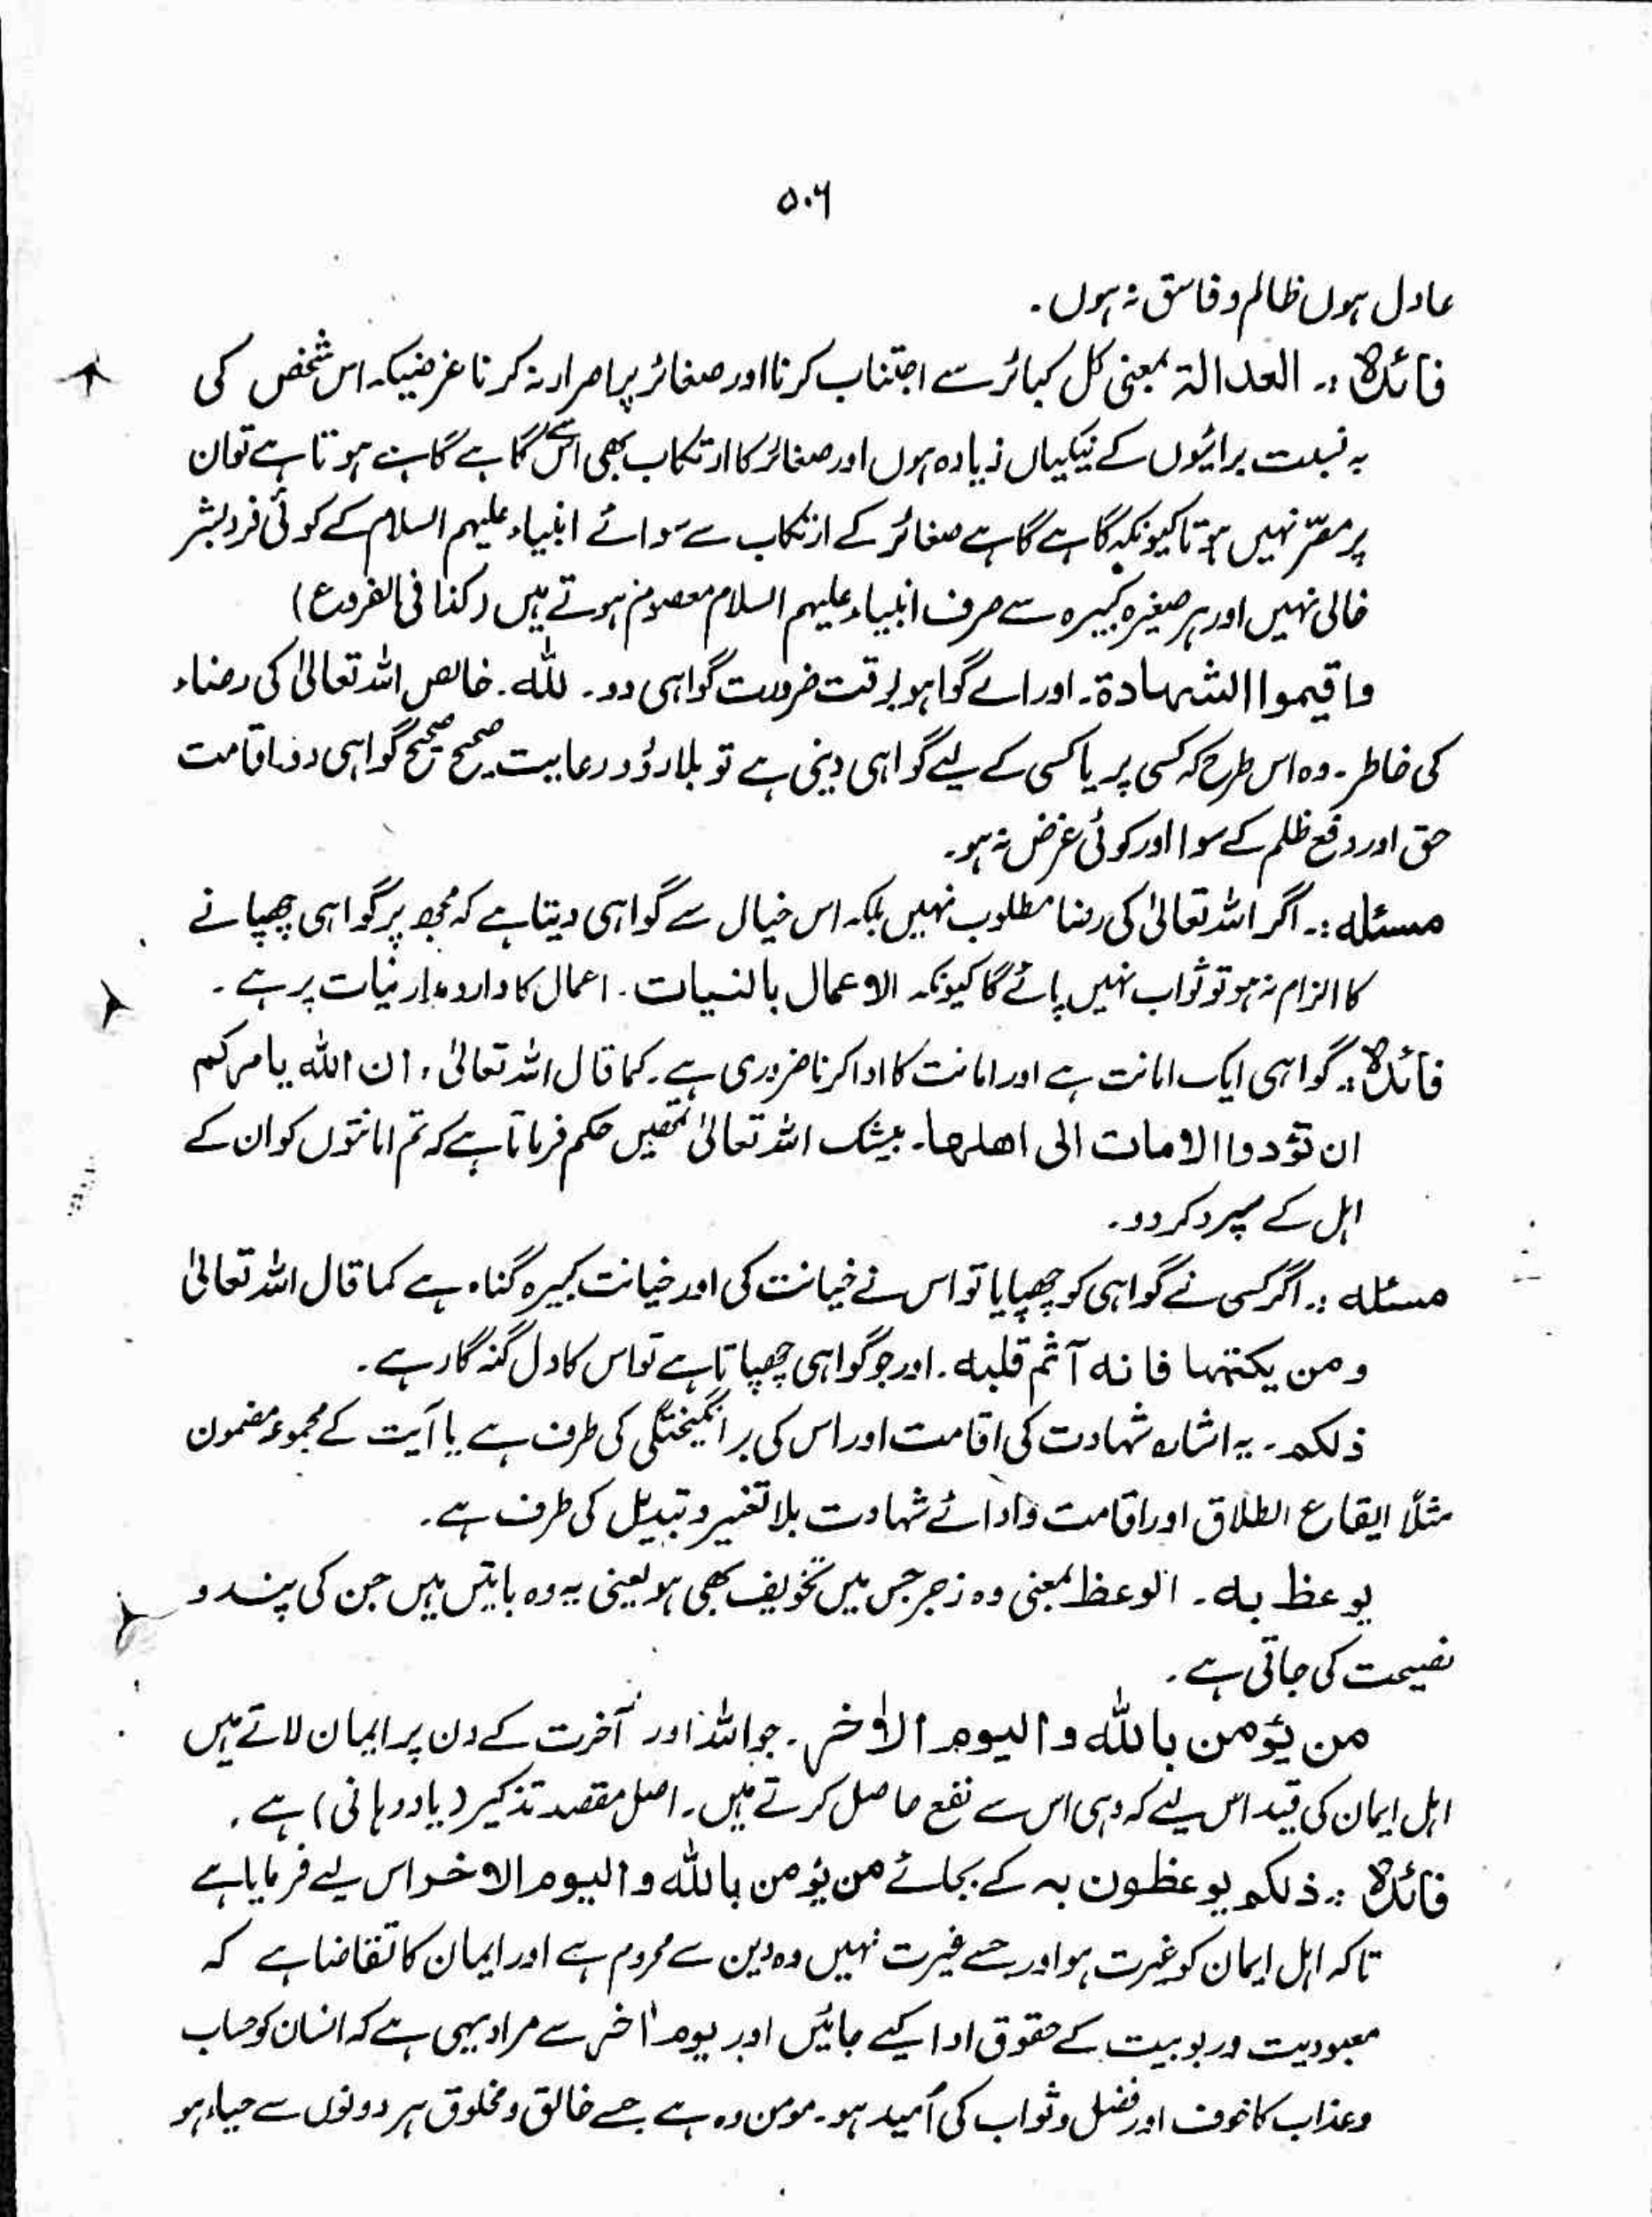 ۵۰۶
عادل ہوں ظالم و فاسق نہ ہوں ۔
فائدہ :۔ العدالۃ بمعنی کل کبائر سے اجتناب کرنا اور صغائر پر اصرار نہ کرنا غرضیکہ اس شخص کی
بہ نسبت برائیوں کے نیکیاں زیادہ ہوں اور صغائر کا ارتکاب بھی اس سے گاہے گاہے ہوتا ہے تو ان
پر مصرّ نہیں ہوتا کیونکہ گاہے گاہے صغائر کے ارتکاب سے سوائے انبیاء علیہم السلام کے کوئی فرد بشر
خالی نہیں اور ہر صغیرہ کبیرہ سے صرف انبیاء علیہم السلام معصوم ہوتے ہیں (کذا فی الفروع)
واقیموا الشہادۃ۔ اور اے گواہو بوقت ضرورت گواہی دو۔ للہ۔ خالص اللہ تعالیٰ کی رضاء
کی خاطر۔ وہ اس طرح کہ کسی پر یا کسی کے لیے گواہی دینی ہے تو بلا رؤ و رعایت صحیح صحیح گواہی دو، اقامت
حق اور دفع ظلم کے سوا اور کوئی غرض نہ ہو۔
مسئلہ :۔ اگر اللہ تعالیٰ کی رضا مطلوب نہیں بلکہ اس خیال سے گواہی دیتا ہے کہ مجھ پر گواہی چھپانے
کا الزام نہ ہو تو ثواب نہیں پائے گا کیونکہ الاعمال بالنیات ۔ اعمال کا دارومدار نیات پر ہے ۔
فائدہ :۔ گواہی ایک امانت ہے اور امانت کا ادا کرنا ضروری ہے ۔ کما قال اللہ تعالیٰ ، ان اللہ یامرکم
ان تؤدوا الامات الی اھلھا۔ بیشک اللہ تعالیٰ تمھیں حکم فرماتا ہے کہ تم امانتوں کو ان کے
اہل کے سپرد کردو ۔
مسئلہ :۔ اگر کسی نے گواہی کو چھپایا تو اس نے خیانت کی اور خیانت کبیرہ گناہ ہے کما قال اللہ تعالیٰ
ومن یکتمہا فانہ آثم قلبہ ۔ اور جو گواہی چھپاتا ہے تو اس کا دل گنہ گار ہے ۔
ذلکم ۔ یہ اشارہ شہادت کی اقامت اور اس کی برانگیختگی کی طرف ہے یا آیت کے مجموعہ مضمون
مثلاً ایقاع الطلاق اور اقامت و ادائے شہادت بلا تغیر و تبدیل کی طرف ہے ۔
یوعظ بہ ۔ الوعظ بمعنی وہ زجر جس میں تخویف بھی ہو یعنی یہ وہ باتیں ہیں جن کی پند و
نصیحت کی جاتی ہے ۔
من یؤمن باللہ والیوم الاٰخر ۔ جو اللہ اور آخرت کے دن پر ایمان لاتے ہیں
اہل ایمان کی قید اس لیے کہ وہی اس سے نفع حاصل کرتے ہیں ۔ اصل مقصد تذکیر (یاددہانی) ہے ۔
فائدہ :۔ ذلکم یوعظون بہ کے بجائے من یؤمن باللہ والیوم الاخر اس لیے فرمایا ہے
تاکہ اہل ایمان کو غیرت ہو اور جسے غیرت نہیں وہ دین سے محروم ہے اور ایمان کا تقاضا ہے کہ
معبودیت و ربوبیت کے حقوق ادا کیے جائیں اور یوم اٰخر سے مراد یہی ہے کہ انسان کو حساب
وعذاب کا خوف اور فضل و ثواب کی اُمید ہو ۔ مومن وہ ہے جسے خالق و مخلوق ہر دونوں سے حیاء ہو